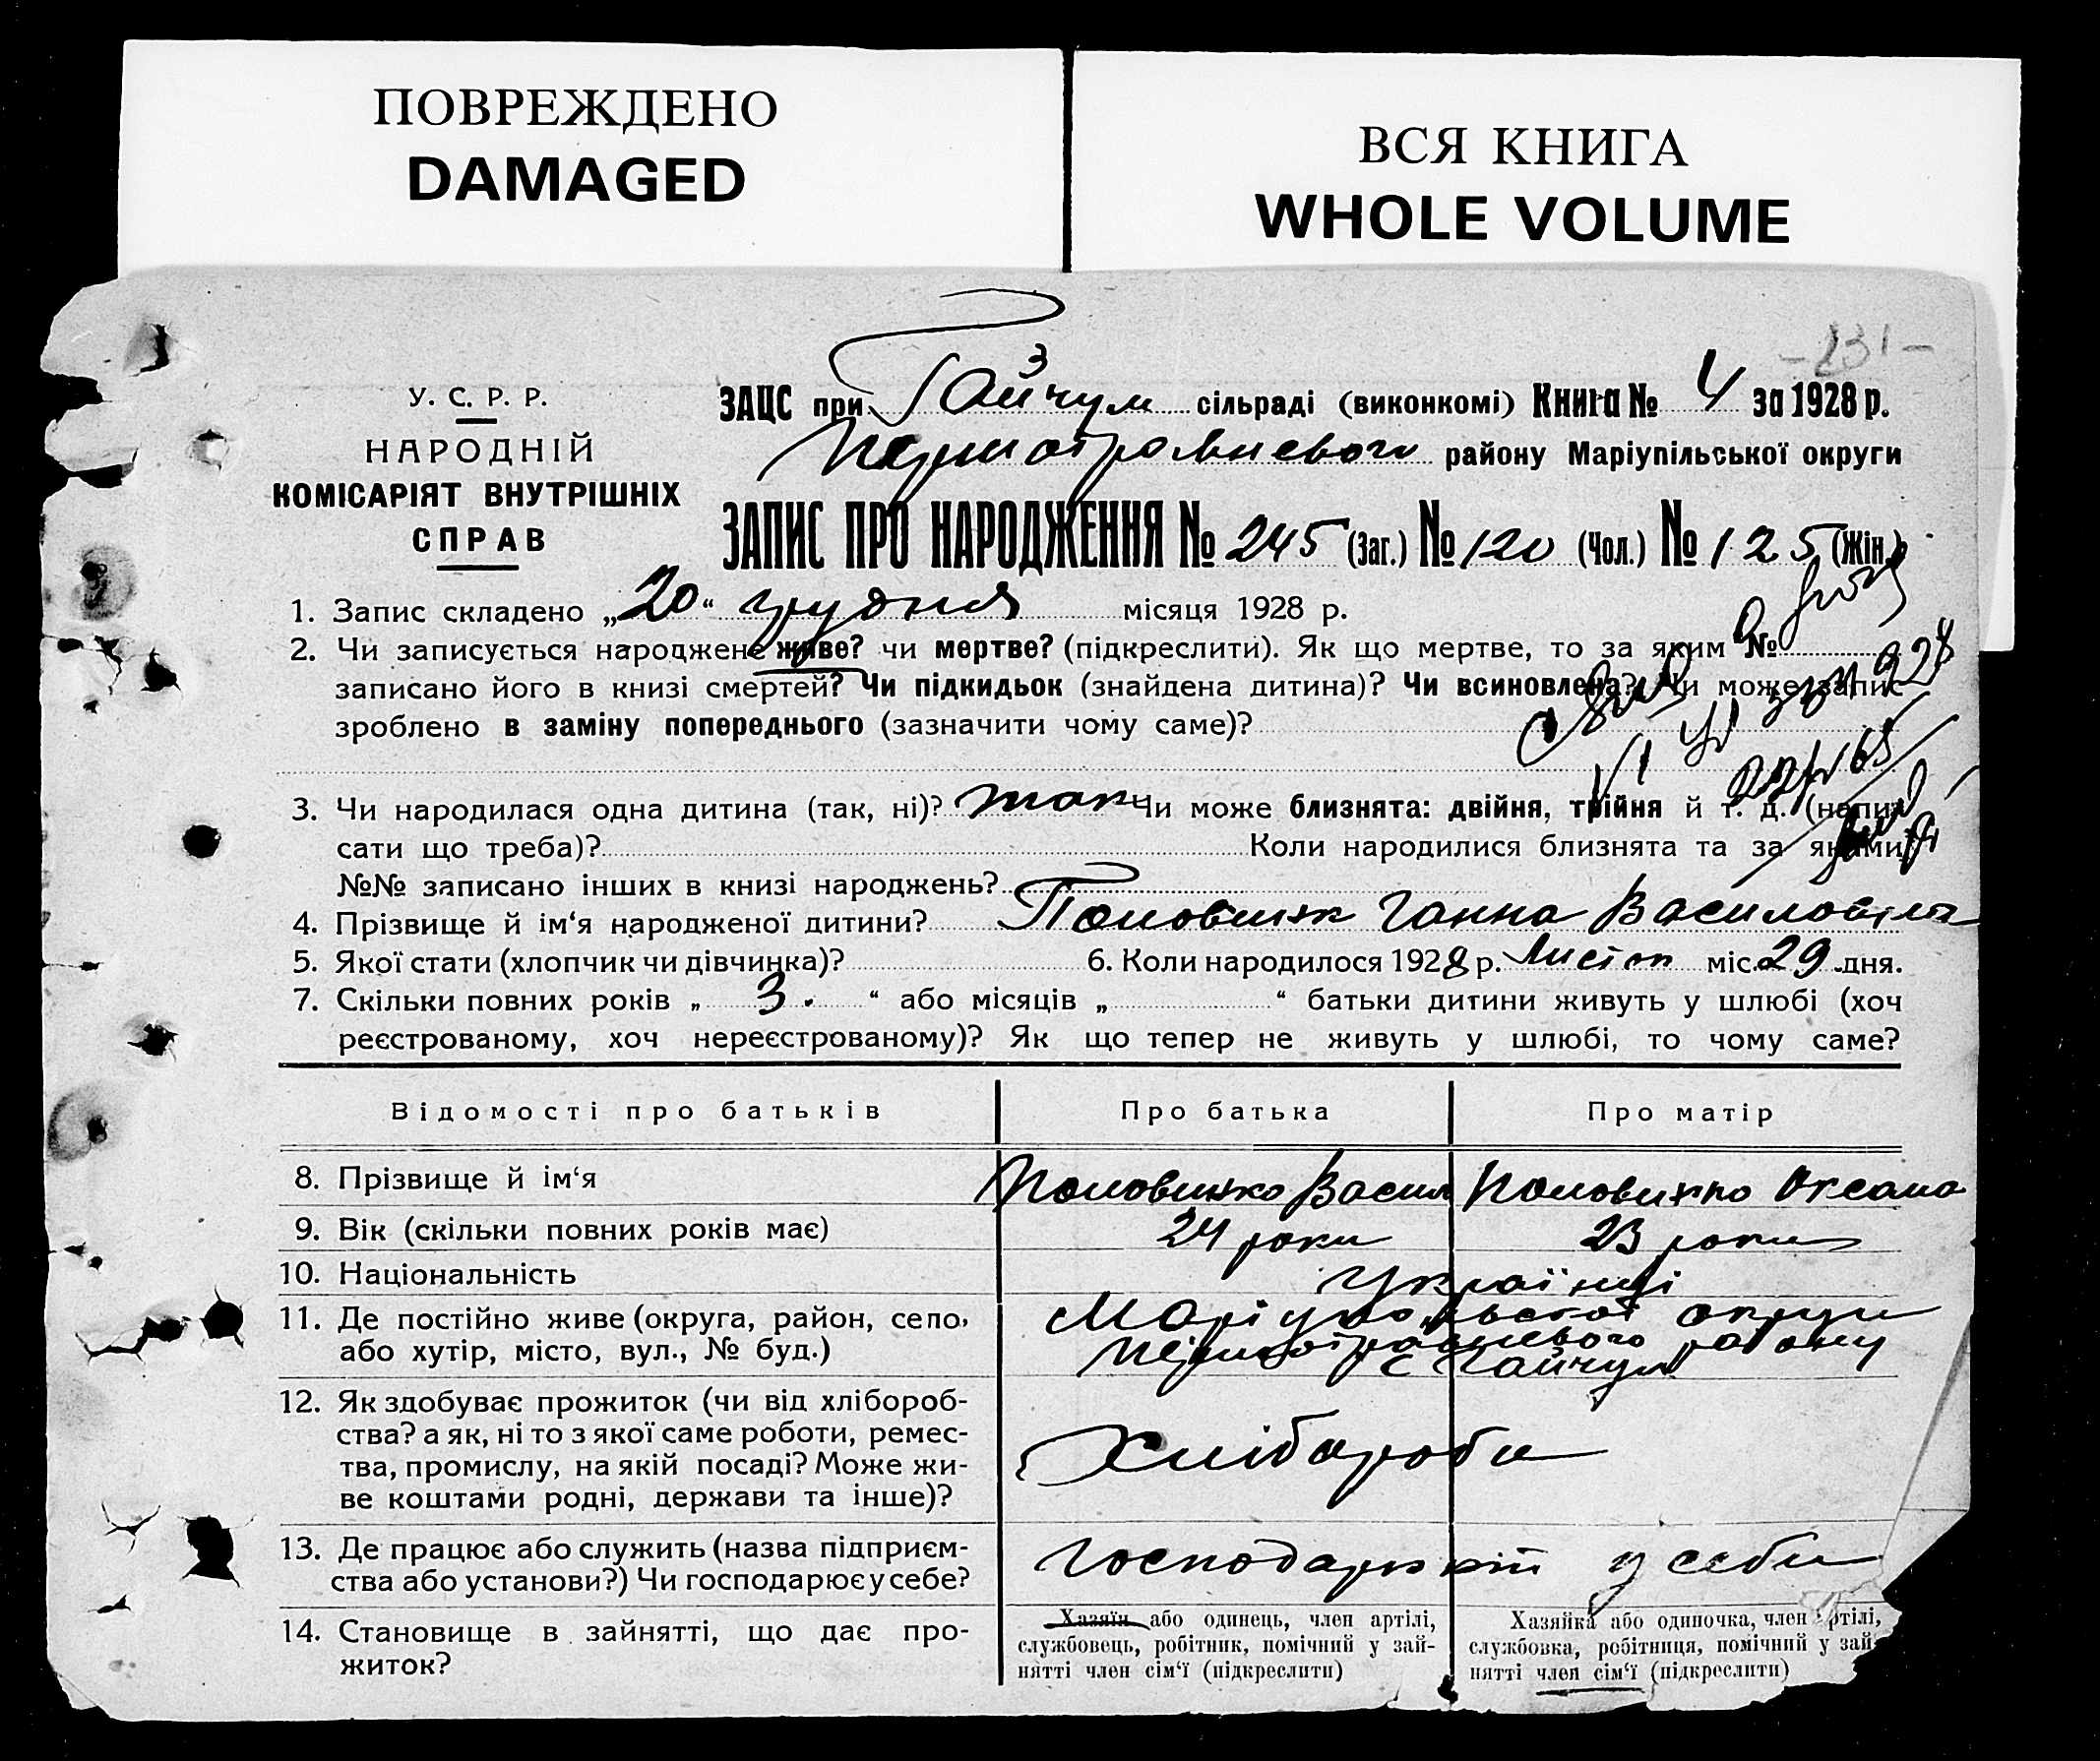 ПОВРЕЖДЕНО
DAMAGED
ВСЯ КНИГА
WHOLE VOLUME
У. С. Р. Р.
НАРОДНІЙ
КОМІСАРІЯТ ВНУТРІШНІХ
СПРАВ
-231-
ЗАЦС при Гайчул сільраді (виконкомі) Книга № 4 за 1928 р.
району Маріупільської округи
ЗАПИС ПРО НАРОДЖЕННЯ № 245 (Заг.) № 120 (Чол.) № 125 (Жін.)
1. Запис складено „20“ грудня місяця 1928 р.
2. Чи записується народжене живе? чи мертве? (підкреслити). Як що мертве, то за яким №
записано його в книзі смертей? Чи підкидьок (знайдена дитина)? Чи всиновлена? Чи може запис
зроблено в заміну попереднього (зазначити чому саме)?
3. Чи народилася одна дитина (так, ні)? так Чи може близнята: двійня, трійня й т. д. (напи-
сати що треба)? Коли народилися близнята та за якими
№№ записано інших в книзі народжень?
4. Прізвище й ім‘я народженої дитини? Ганна Василовіна
5. Якої стати (хлопчик чи дівчинка)? 6. Коли народилося 1928 р. Листоп міс. 29 дня.
7. Скільки повних років „ 3. “ або місяців „ “ батьки дитини живуть у шлюбі (хоч
реєстрованому, хоч нереєстрованому)? Як що тепер не живуть у шлюбі, то чому саме?
Відомості про батьків Про батька Про матір
8. Прізвище й ім‘я Половинко Васил Половинко Оксана
9. Вік (скільки повних років має) 24 роки 23 роки
10. Національність Українці
11. Де постійно живе (округа, район, село,
або хутір, місто, вул., № буд.)
Маріупольської округи
району
с Гайчул
12. Як здобуває прожиток (чи від хлібороб-
ства? а як, ні то з якої саме роботи, ремес-
тва, промислу, на якій посаді? Може жи-
ве коштами родні, держави та інше)?
Хлібороби
13. Де працює або служить (назва підприєм-
ства або установи?) Чи господарює у себе?
у себи
14. Становище в зайнятті, що дає про-
житок?
Хазяїн або одинець, член артілі,
службовець, робітник, помічний у зай-
нятті член сім‘ї (підкреслити)
Хазяйка або одиночка, член артілі,
службовка, робітниця, помічний у зай-
нятті член сім‘ї (підкреслити)